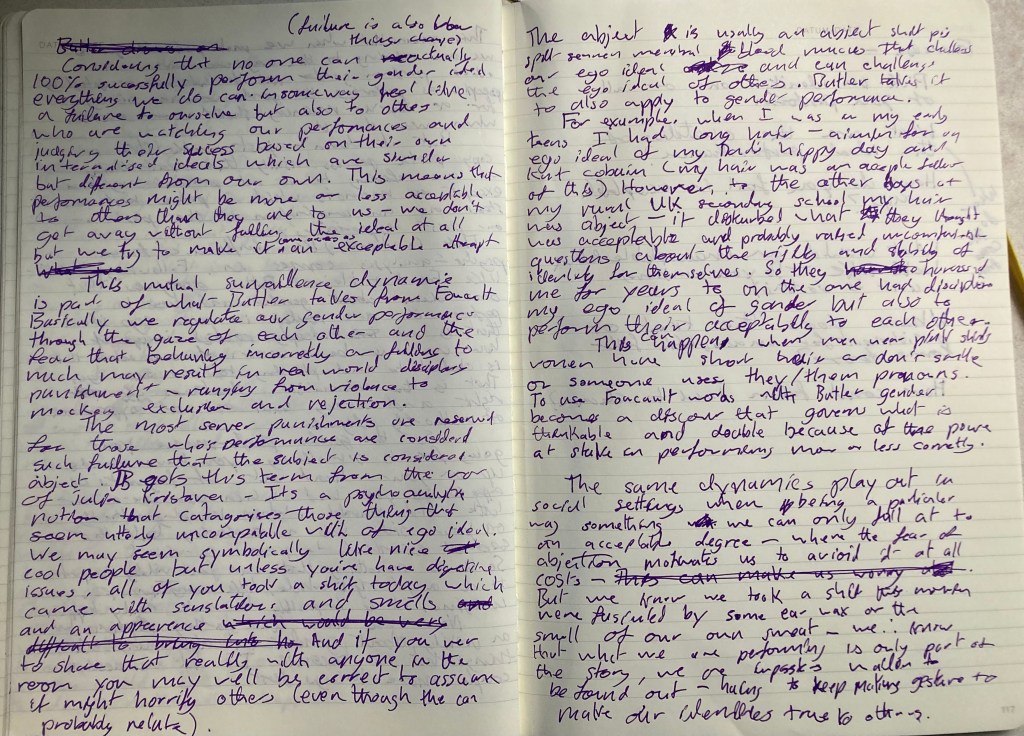 (failure is also how
things change)
Considering that no one can actually
100% successfully perform their gender ideal
everything we do can in someway feel like
a failure to ourselve but also to others
who are watching our perfomances and
judging their success based on their own
internalised ideals which are similar
but different from our own. This means that
performances might be more or less acceptable
to others than they are to us - we don't
get away without failing the ideal at all
but we try to make it an exceptable attempt
This mutual surveillance dynamic
is part of what Butler takes from Foucault
Basically we regulate our gender performance
through the gaze of each other and the
fear that behaving incorrectly or failing to
much may result in real world disciplinary
punishment - ranging from violence to
mockery exclusion and rejection.
The most server punishments are reserved
for those who's performance are considered
such failure that the subject is considered
abject. JB gets this term from the work
of Julia Kristeva - Its a psychoanalytic
notion that catagorises those things that
seem utterly uncompatible with of ego ideal.
We may seem symbolically like nice
cool people but unless you're have digestive
issues, all of you took a shit today which
came with sensations and smells
and an appearence And if you ver
to share that reality with anyone in the
room you may well be correct to assume
it might horrify others (even though the can
probably relate).
The abject is usually an abject shit pis
spit semen menstrual blood mucus that challens
our ego ideal and can challeng
the ego ideal of others. Butler takes it
to also apply to gender perfomance.
For example, when I was in my early
teens I had long hair - aimin for an
ego ideal of my Dad's hippy day and
Kurt cobain (my hair was an acceptable failure
of this) However, to the other boys at
my rural UK secondary school my hair
was abject - it disturbed what they thought
was acceptable and probably raised uncomfortable
questions about the rigidity and stability of
identity for themselves. So they harrased
me for years to on the one had discipline
my ego ideal of gender but also to
perform their acceptability to each other.
This can happen when men wear pink shirts
women have short hair or don't smile
or someone uses they/them pronouns.
To use Foucault words with Butler gender
becomes a discour that govern what is
thinkable and doable because of the power
at stake in performing more or less correctly.
The same dynamics play out in
social settings when being a particular
way something we can only fail at to
an acceptable degree - where the fear of
abjection motivates us to avioid it at all
costs -
But we know we took a shit this morning
were fasciated by some ear wax or the
smell of our own sweat - we know
that what we are performing is only part of
the story, we are imposters waiting to
be found out - having to keep making gesture to
make our identities true to others.